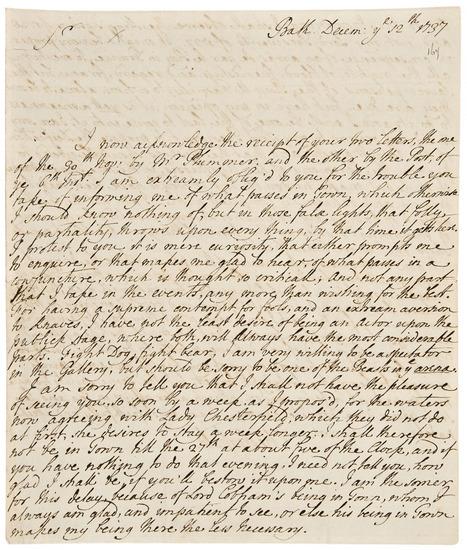 Sr Bath. Decem: ye 12th 1737
I now acknowledge the receipt of your two Letters, the one
of the 30th Nov: by Mr Plummer, and the other by the Post, of
ye 6th Inst. I am extreamly oblig'd to you for the trouble you
take of informing me of what passes in Town, which otherwise
I should know nothing of, but in those false lights, that folly
or partiality, throws upon every thing, by that time it gets here.
I protest to you it is mere curiosity, that either prompts me
to enquire, or that makes me glad to hear, of what passes in a
conjuncture, which is thought so critical, and not any part
that I take in the events, any more than wishing for the best.
For having a supreme contempt for fools, and an extream aversion
to Knaves, I have not the least desire of being an Actor upon the
publick Stage, where both, will always have the most considerable
parts. Fight Dog, fight bear, I am very willing to be a spectator
in the Gallery, but should be sorry to be one of the Beasts in ye arena.
I am sorry to tell you that I shall not have the pleasure
of seeing you, so soon by a week as I propos'd, for the waters
now agreeing with Lady Chesterfield, which they did not do
at first, she desires to stay a week longer. I shall therefore
not be in Town till the 27th at about five of the Clock, and if
you have nothing to do that evening, I need not tell you, how
glad I shall be, if you'll bestow it upon me. I am the sorryer
for this delay, because of Lord Cobham's being in Town, whom I
always am glad, and impatient to see, or else his being in Town
makes my being there the less necessary.